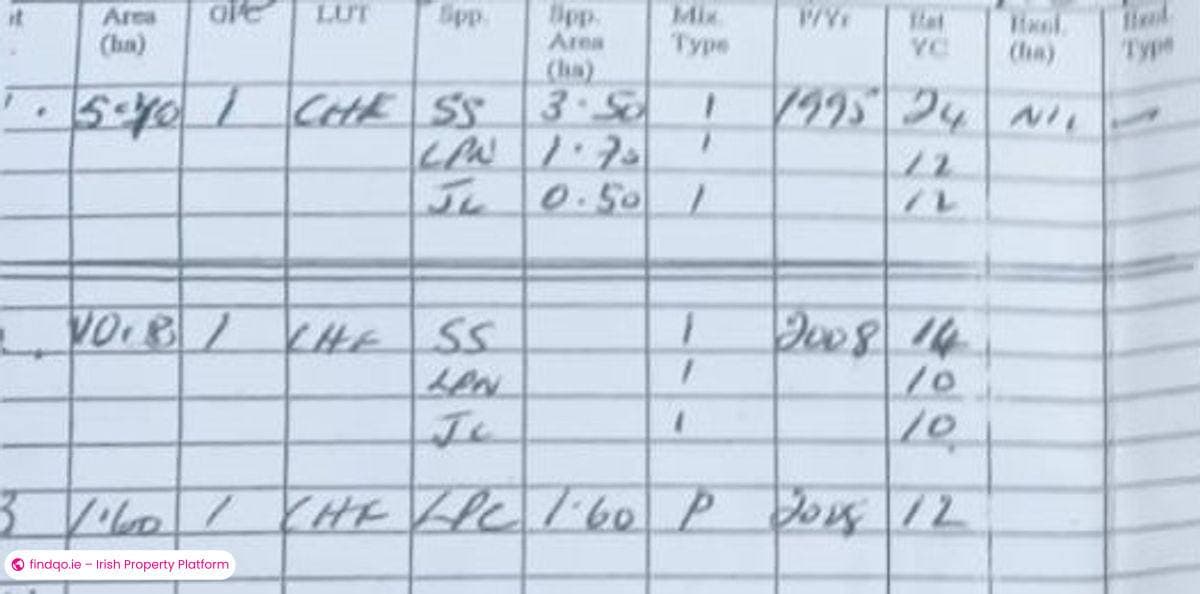 Area GPC LUT Spp. Spp. Mix P/Yr Est Excl. Excl.
(ha) Area Type YC (ha) Type
(ha)
5.70 1 CHF SS 3.50 1 1995 24 Nil –
LPN 1.70 1 12
JL 0.50 1 12
10.8 1 CHF SS 1 2008 14
LPN 1 10
JL 1 10
3 1.60 1 CHF LPC 1.60 P 12
findqo.ie – Irish Property Platform